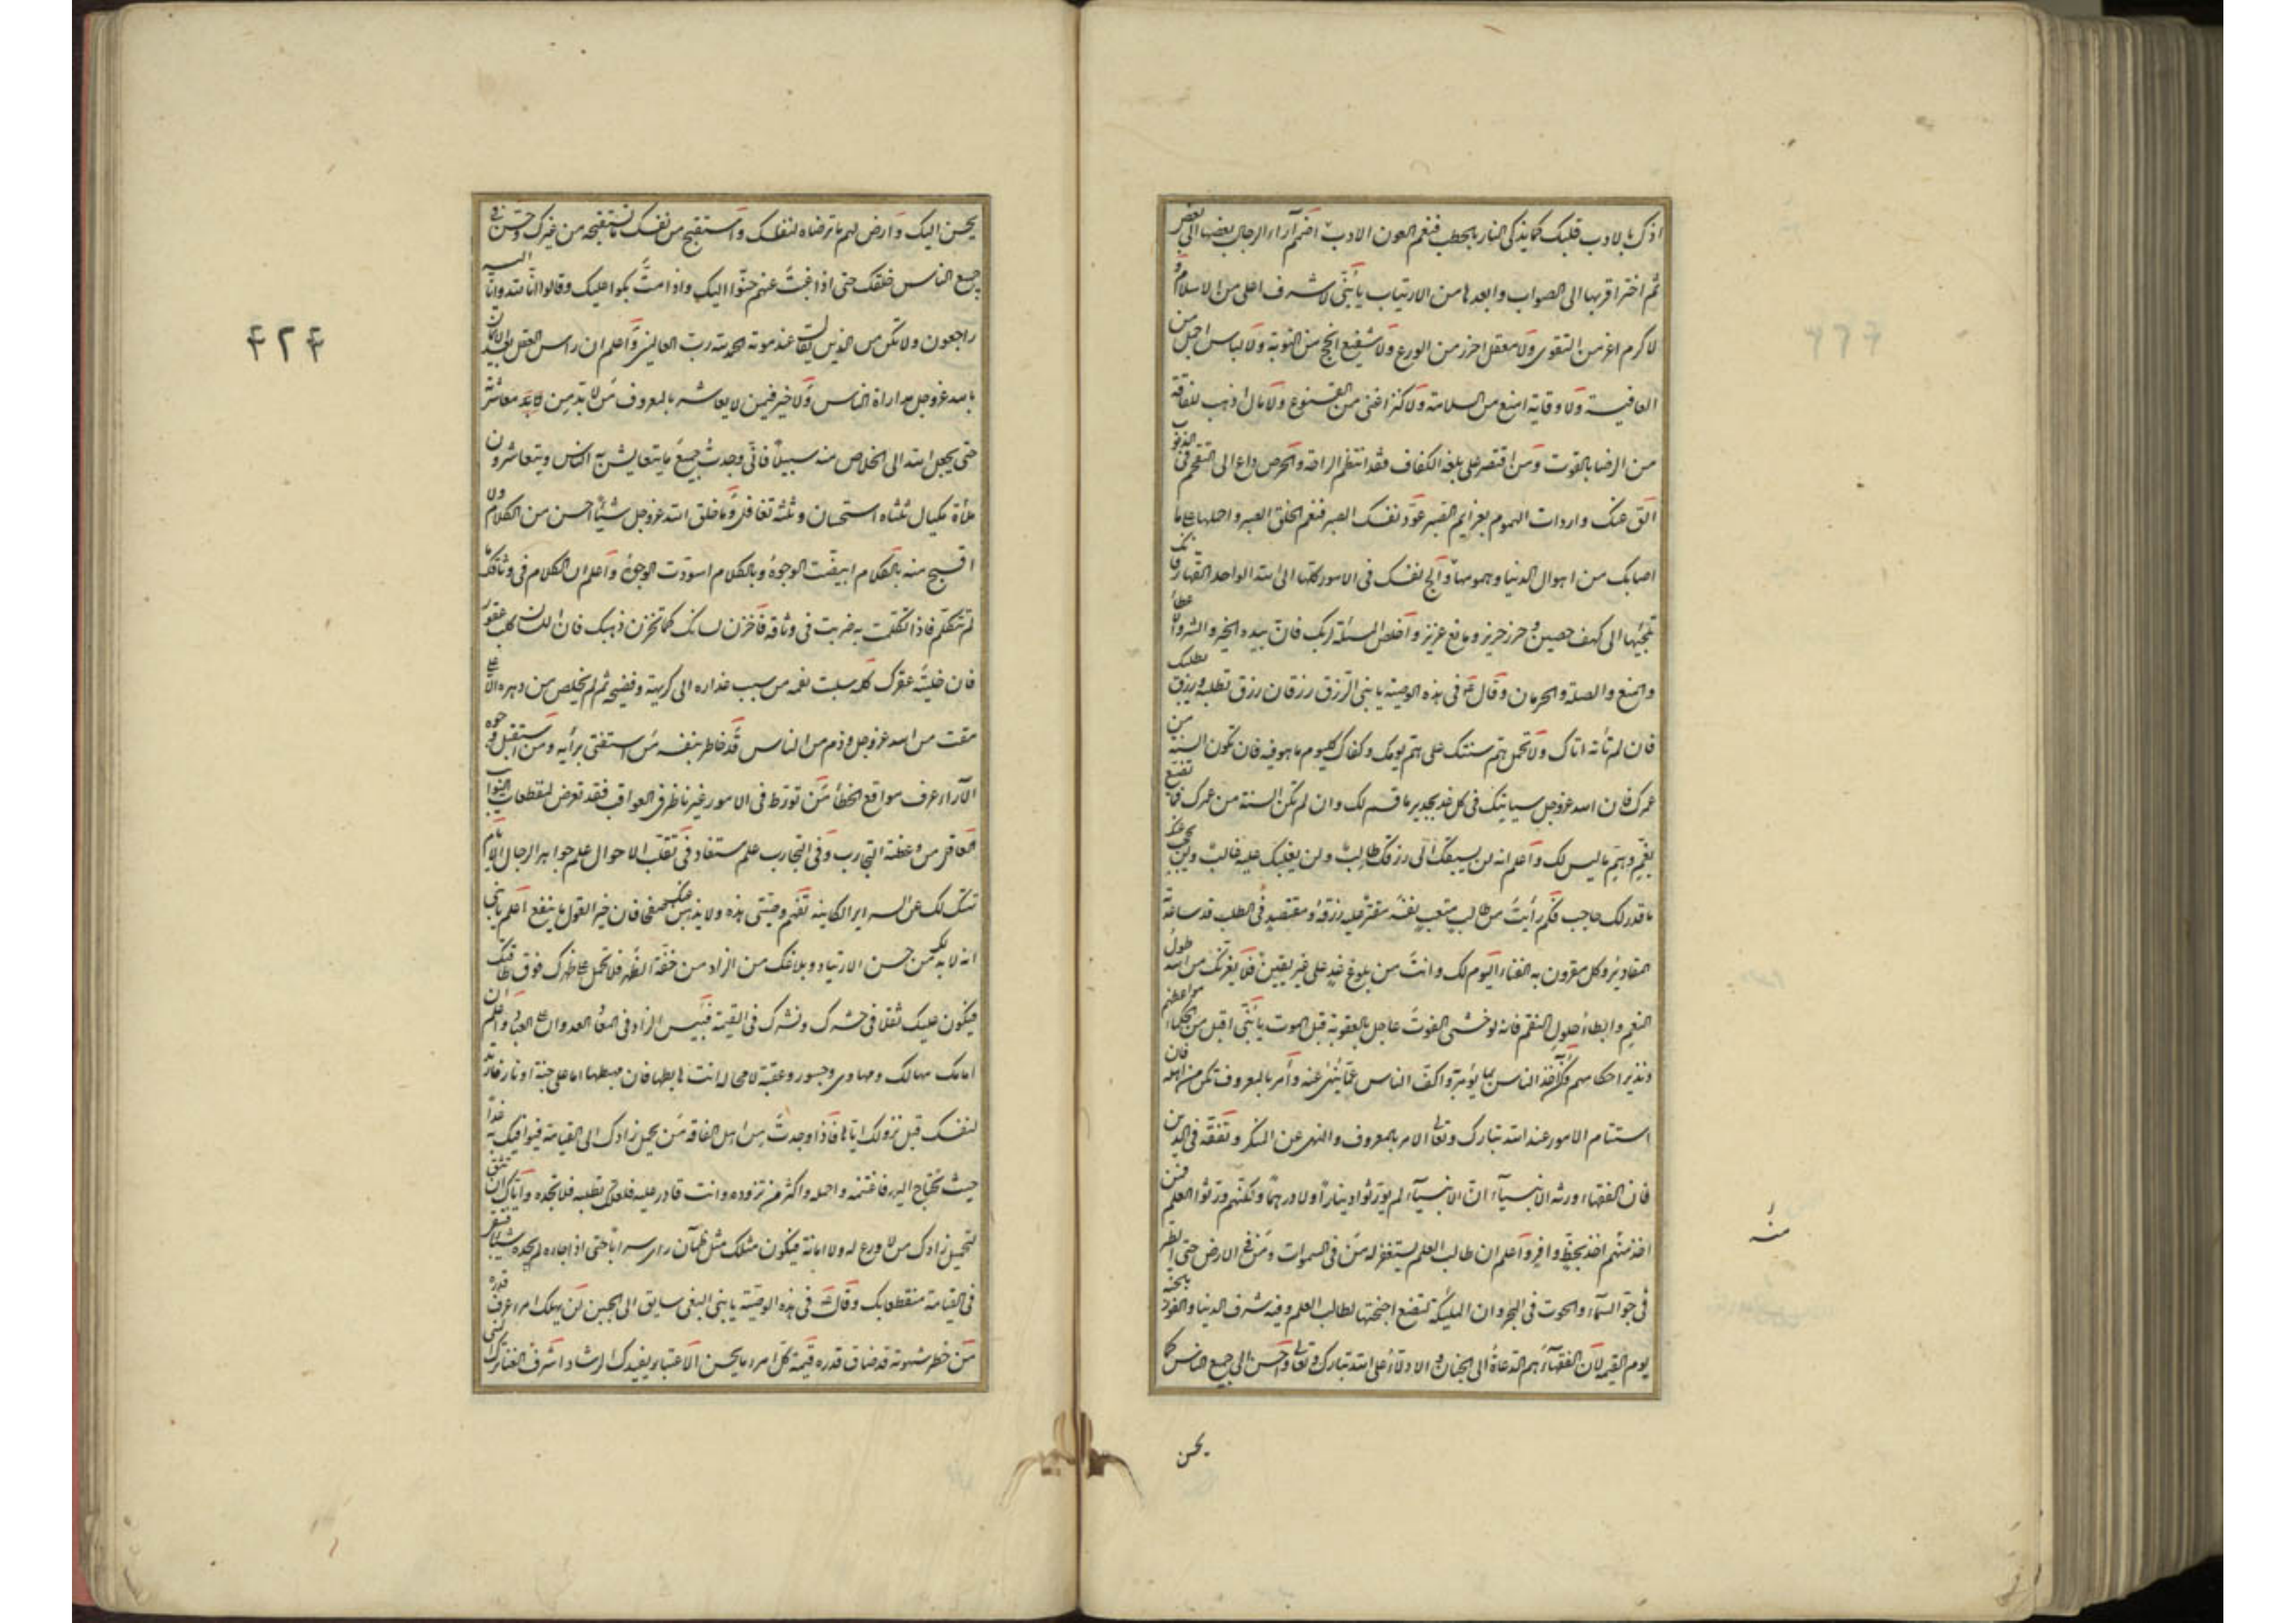 اذك بالادب قلبك كما يذكى النار بالحطب فنعم العون الادب اضمم آراء الرجال بعضها الى بعض
ثم اختر اقربها الى الصواب وابعدها من الارتياب يا بُنَىّ لا شرف اعلى من الاسلام و
لا كرم اعز من التقوى ولا معقل احرز من الورع ولا شفيع انجح من التوبة ولا لباس اجمل من
العافية ولا وقاية امنع من السلامة ولا كنز اغنى من القنوع ولا مال اذهب للفاقة
من الرضا بالقوت ومن اقتصر على بلغة الكفاف فقد انتظم الراحة والحرص داع الى التقحم فى الذنوب
الق عنك واردات الهموم بعزايم الصبر عوّد نفسك الصبر فنعم الخلق الصبر واحملها على ما
اصابك من اهوال الدنيا وهمومها والج نفسك فى الامور كلها الى الله الواحد القهار فانك
تلجئها الى كهف حصين وحرز حريز ومانع عزيز واخلص المسئلة لربك فان بيده الخير والشر والاعطاء
والمنع والصلة والحرمان وقال ع فى هذه الوصية يا بنى الرزق رزقان رزق تطلبه ورزق يطلبك
فان لم تأته اتاك ولا تحمل هم سنتك على هم يومك وكفاك كل يوم ما هو فيه فان تكون السنة من
عمرك فان الله عز وجل سياتيك فى كل غد بجديد ما قسم لك وان لم تكن السنة من عمرك فما تصنع
بغم وهم ما ليس لك واعلم انه لن يسبقك الى رزقك طالب ولن يغلبك عليه غالب ولن يحتجب عنك
ما قدر لك حاجب فكم رأيت من طالب متعب نفسه مقتر عليه رزقه ومقتصد فى الطلب قد ساعدته
المقادير وكل مقرون به الفناء اليوم لك وانت من بلوغ غد على غير يقين فلا يغرنك من الله طول
النعم وابطاء حلول النقم فانه لو خشى الفوت عاجل بالعقوبة قبل الموت يا بُنَىّ اقبل من الحكماء مواعظهم
وتدبر احكامهم وكن آخذ الناس بما يؤمر به واكف الناس عما ينهى عنه وأمر بالمعروف تكن من اهله فان
استتمام الامور عند الله تبارك وتعالى الامر بالمعروف والنهى عن المنكر وتفقه فى الدين
فان الفقهاء ورثة الانبيآء ان الانبيآء لم يورثوا دينارا ولا درهما ولكنهم ورثوا العلم فمن
اخذ منهم اخذ بحظ وافر واعلم ان طالب العلم يستغفر له من فى السموات ومن فى الارض حتى الطير
فى جو السمآء والحوت فى البحر وان الملئكة لتضع اجنحتها لطالب العلم وفيه شرف الدنيا والفوز بالجنة
يوم القيمة لان الفقهآء هم الدعاة الى الجنان والادلاء على الله تبارك وتعالى واحسن الى جميع الناس كما
منه
يحسن
۴۲۴
يحسن اليك وارض لهم ما ترضاه لنفسك واستقبح من نفسك ما تستقبحه من غيرك وحسّن مع
جميع الناس خلقك حتى اذا غبت عنهم حنّوا اليك واذا متّ بكوا عليك وقالوا انا لله وانا اليه
راجعون ولا تكن من الذين يقال عند موته الحمد لله رب العالمين واعلم ان راس العقل بعد الايمان
بالله عز وجل مداراة الناس ولا خير فيمن لا يعاشر بالمعروف من لا بد من معاشرته
حتى يجعل الله الى الخلاص منه سبيلا فانى وجدت جميع ما يتعايش به الناس ويتعاشرون
ملأة مكيال ثلثاه استحسان وثلثه تغافل وما خلق الله عز وجل شيئا احسن من الكلام ولا
اقبح منه بالكلام ابيضّت الوجوه وبالكلام اسودّت الوجوه واعلم ان الكلام فى وثاقك ما
لم تتكلم فاذا تكلمت به ضربت فى وثاقه فاخزن لسانك كما تخزن ذهبك فان اللسان كلب عقور
فان خليته عقرك كلمة سلبت نعمة من سيب عذاره الى كريهة وفضيحة ثم لم يخلص من دهره الا على
مقت من الله عز وجل وذم من الناس قد خاطر بنفسه من استغنى برأيه ومن استقبل وجوه
الآراء عرف مواقع الخطأ من تورط فى الامور غير ناظر فى العواقب فقد تعرض لمفظعات النوائب
العاقل من وعظته التجارب وفى التجارب علم مستفاد فى تقلب الاحوال علم جواهر الرجال الايام
تهتك لك عن السراير الكامنة تفهم وصيتى هذه ولا يذهبن عنك صفحا فان خير القول ما ينفع اعلم يا بنى
انه لا بد لك من حسن الارتياد وبلاغك من الزاد من خفة الظهر فلا تحمل على ظهرك فوق طاقتك
فيكون عليك ثقلا فى حشرك ونشرك فى القيمة فبئس الزاد فى المعاد العدوان على العباد واعلم ان
امامك مهالك ومهاوى وجسور وعقبة لا محالة انت هابطها فان مهبطها اما على جنة او نار فارتد
لنفسك قبل نزولك اياها فاذا وجدت من اهل الفاقة من يحمل زادك الى القيامة فيوافيك به غدا
حيث تحتاج اليه فاغتنمه وحمله واكثر من تزوده وانت قادر عليه فلعلك تطلبه فلا تجده واياك ان تثق
لتحميل زادك من لا ورع له ولا امانة فيكون مثلك مثل ظمآن راى سرابا حتى اذا جاءه لم يجده شيئا فتبقى
فى القيامة منقطعا بك وقال ع فى هذه الوصية يا بنى البغى سايق الى الحين لن يهلك امرء عرف قدره
من حظر شهوته قد صان قدره قيمة كل امرء ما يحسن الاعتبار يفيدك الرشاد اشرف الغنا ترك المنى